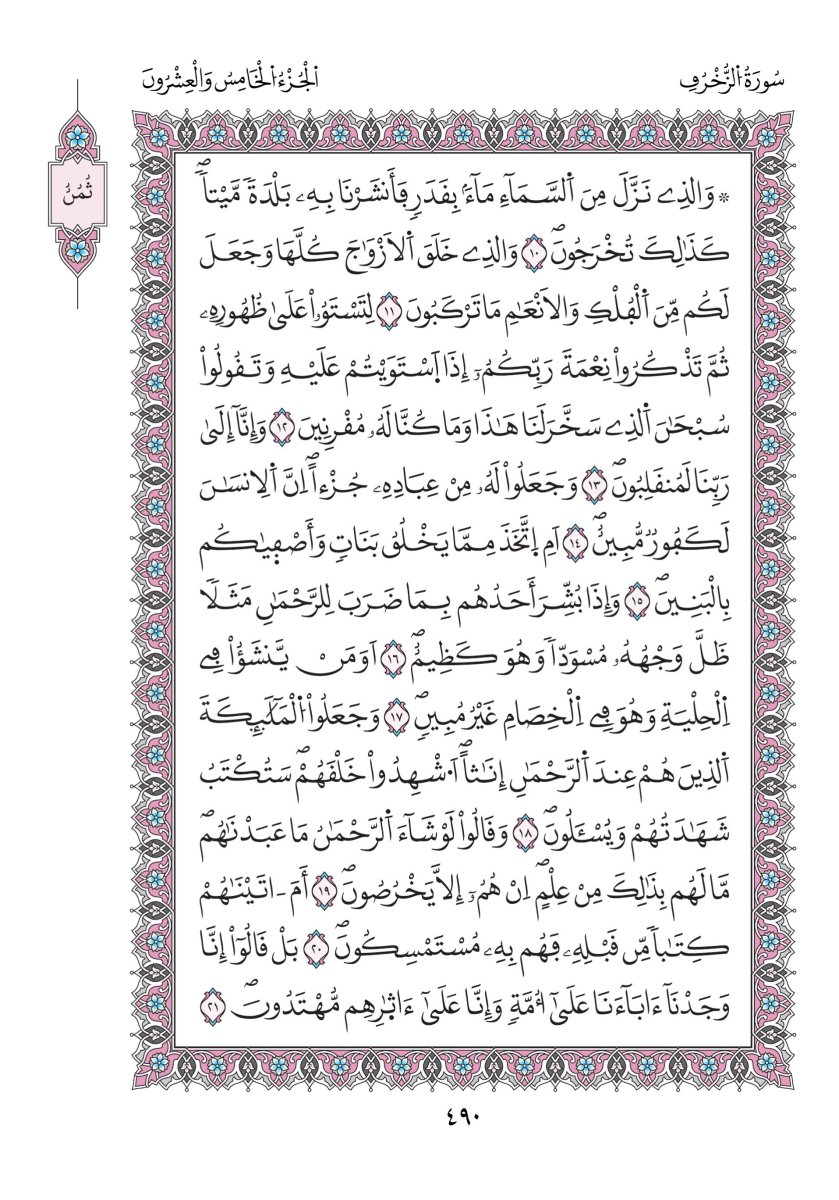 سُورَةُ اُلزُّخْرُفِ
اَلْجُزْءُ اُلْخَامِسُ وَالْعِشْرُونَ
ثُمُنُ
* وَالذِے نَزَّلَ مِنَ اَ۬لسَّمَآءِ مَآءَۢ بِقَدَرٖ فَأَنشَرْنَا بِهِۦ بَلْدَةٗ مَّيْتاٗۖ
كَذَٰلِكَ تُخْرَجُونَۖ ١٠ وَالذِے خَلَقَ اَ۬لَازْوَٰجَ كُلَّهَا وَجَعَلَ
لَكُم مِّنَ اَ۬لْفُلْكِ وَالَانْعَٰمِ مَا تَرْكَبُونَ ١١ لِتَسْتَوُۥاْ عَلَىٰ ظُهُورِهِۦ
ثُمَّ تَذْكُرُواْ نِعْمَةَ رَبِّكُمُۥٓ إِذَا اَ۪سْتَوَيْتُمْ عَلَيْهِ وَتَقُولُواْ
سُبْحَٰنَ اَ۬لذِے سَخَّرَ لَنَا هَٰذَا وَمَا كُنَّا لَهُۥ مُقْرِنِينَ ١٢ وَإِنَّآ إِلَىٰ
رَبِّنَا لَمُنقَلِبُونَۖ ١٣ وَجَعَلُواْ لَهُۥ مِنْ عِبَادِهِۦ جُزْءاًۖ اِنَّ اَ۬لِانسَٰنَ
لَكَفُورٞ مُّبِينٌۖ ١٤ اَمِ اِ۪تَّخَذَ مِمَّا يَخْلُقُ بَنَاتٖ وَأَصْفٜيٰكُم
بِالْبَنِينَۖ ١٥ وَإِذَا بُشِّرَ أَحَدُهُم بِمَا ضَرَبَ لِلرَّحْمَٰنِ مَثَلاٗ
ظَلَّ وَجْهُهُۥ مُسْوَدّاٗ وَهُوَ كَظِيمٌۖ ١٦ اَوَمَنْ يَّنشَؤُاْ فِے
اِ۬لْحِلْيَةِ وَهُوَ فِے اِ۬لْخِصَامِ غَيْرُ مُبِينٖۖ ١٧ وَجَعَلُواْ اُ۬لْمَلَٰٓئِكَةَ
اَ۬لذِينَ هُمْ عِندَ اَ۬لرَّحْمَٰنِ إِنَٰثاًۖ ا۟شْهِدُواْ خَلْقَهُمْۖ سَتُكْتَبُ
شَهَٰدَتُهُمْ وَيُسْـَٔلُونَۖ ١٨ وَقَالُواْ لَوْ شَآءَ اَ۬لرَّحْمَٰنُ مَا عَبَدْنَٰهُمۖ
مَّا لَهُم بِذَٰلِكَ مِنْ عِلْمٍۖ اِنْ هُمُۥٓ إِلَّا يَخْرُصُونَۖ ١٩ أَمَ اٰتَيْنَٰهُمْ
كِتَٰباٗ مِّن قَبْلِهِۦ فَهُم بِهِۦ مُسْتَمْسِكُونَۖ ٢٠ بَلْ قَالُوٓاْ إِنَّا
وَجَدْنَآ ءَابَآءَنَا عَلَىٰٓ أُمَّةٖ وَإِنَّا عَلَىٰٓ ءَاثٰ۪رِهِم مُّهْتَدُونَۖ ٢١
٤٩٠